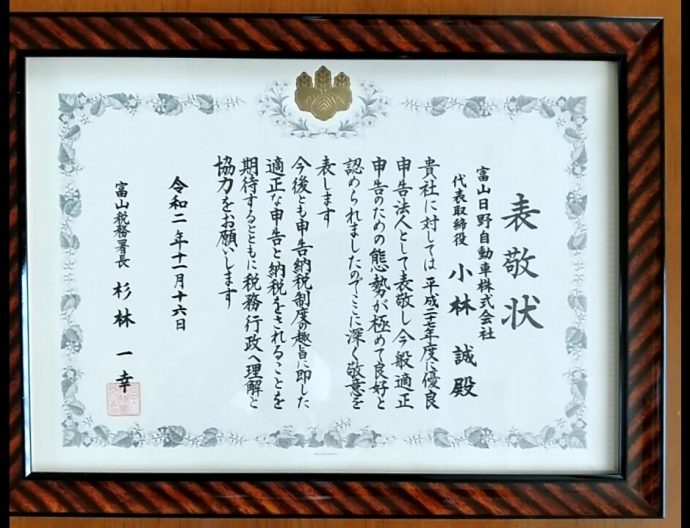 表敬状
富山日野自動車株式会社
代表取締役 小林 誠 殿
貴社に対しては平成二十七年度に優良
申告法人として表敬し今般適正
申告のための態勢が極めて良好と
認められましたのでここに深く敬意を
表します
今後とも申告納税制度の趣旨に即した
適正な申告と納税をされることを
期待するとともに税務行政へ理解と
協力をお願いします
令和二年十一月十六日
富山税務署長 杉林 一幸